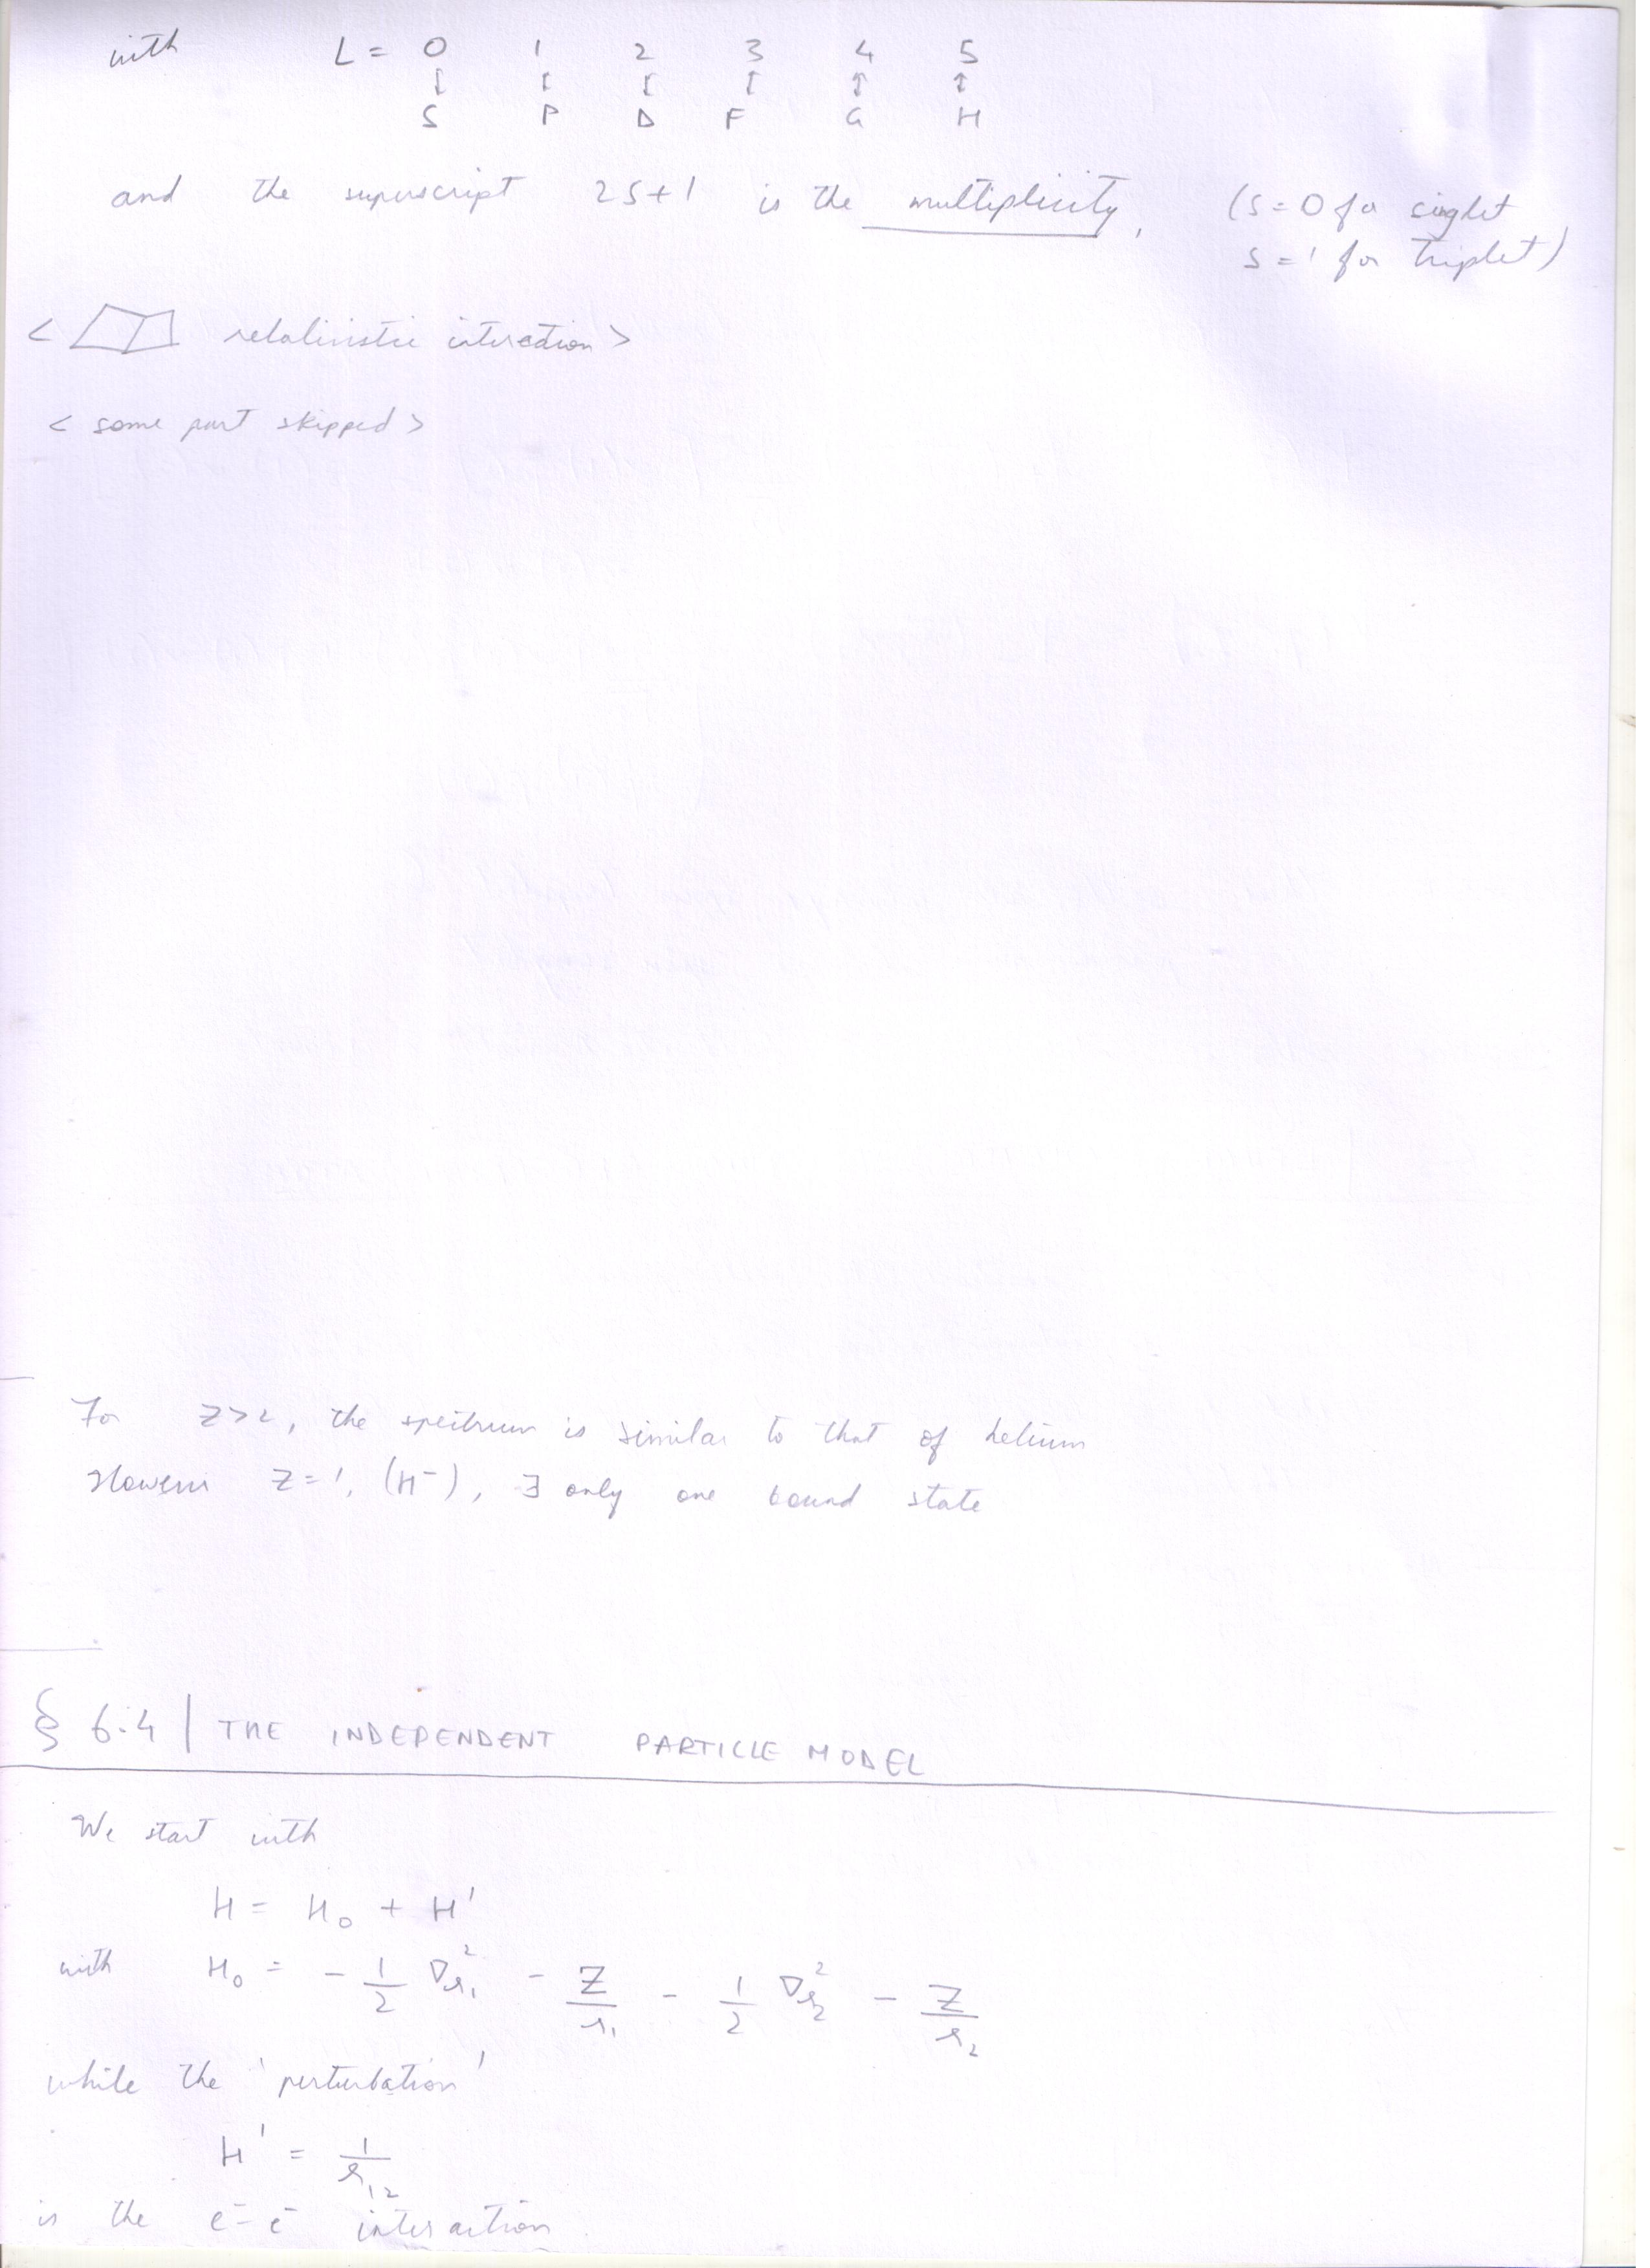 with L = 0 1 2 3 4 5
↕ ↕ ↕ ↕ ↕ ↕
S P D F G H
and the superscript 2S+1 is the multiplicity, (S=0 for singlet
S=1 for triplet)
< relativistic interaction >
< some part skipped >
For Z>2, the spectrum is similar to that of helium
However Z=1, (H⁻), ∃ only one bound state
§ 6.4 | THE INDEPENDENT PARTICLE MODEL
We start with
H = H₀ + H'
with H₀ = - 1/2 ∇²r₁ - Z/r₁ - 1/2 ∇²r₂ - Z/r₂
while the 'perturbation'
H' = 1/r₁₂
is the e⁻-e⁻ interaction.